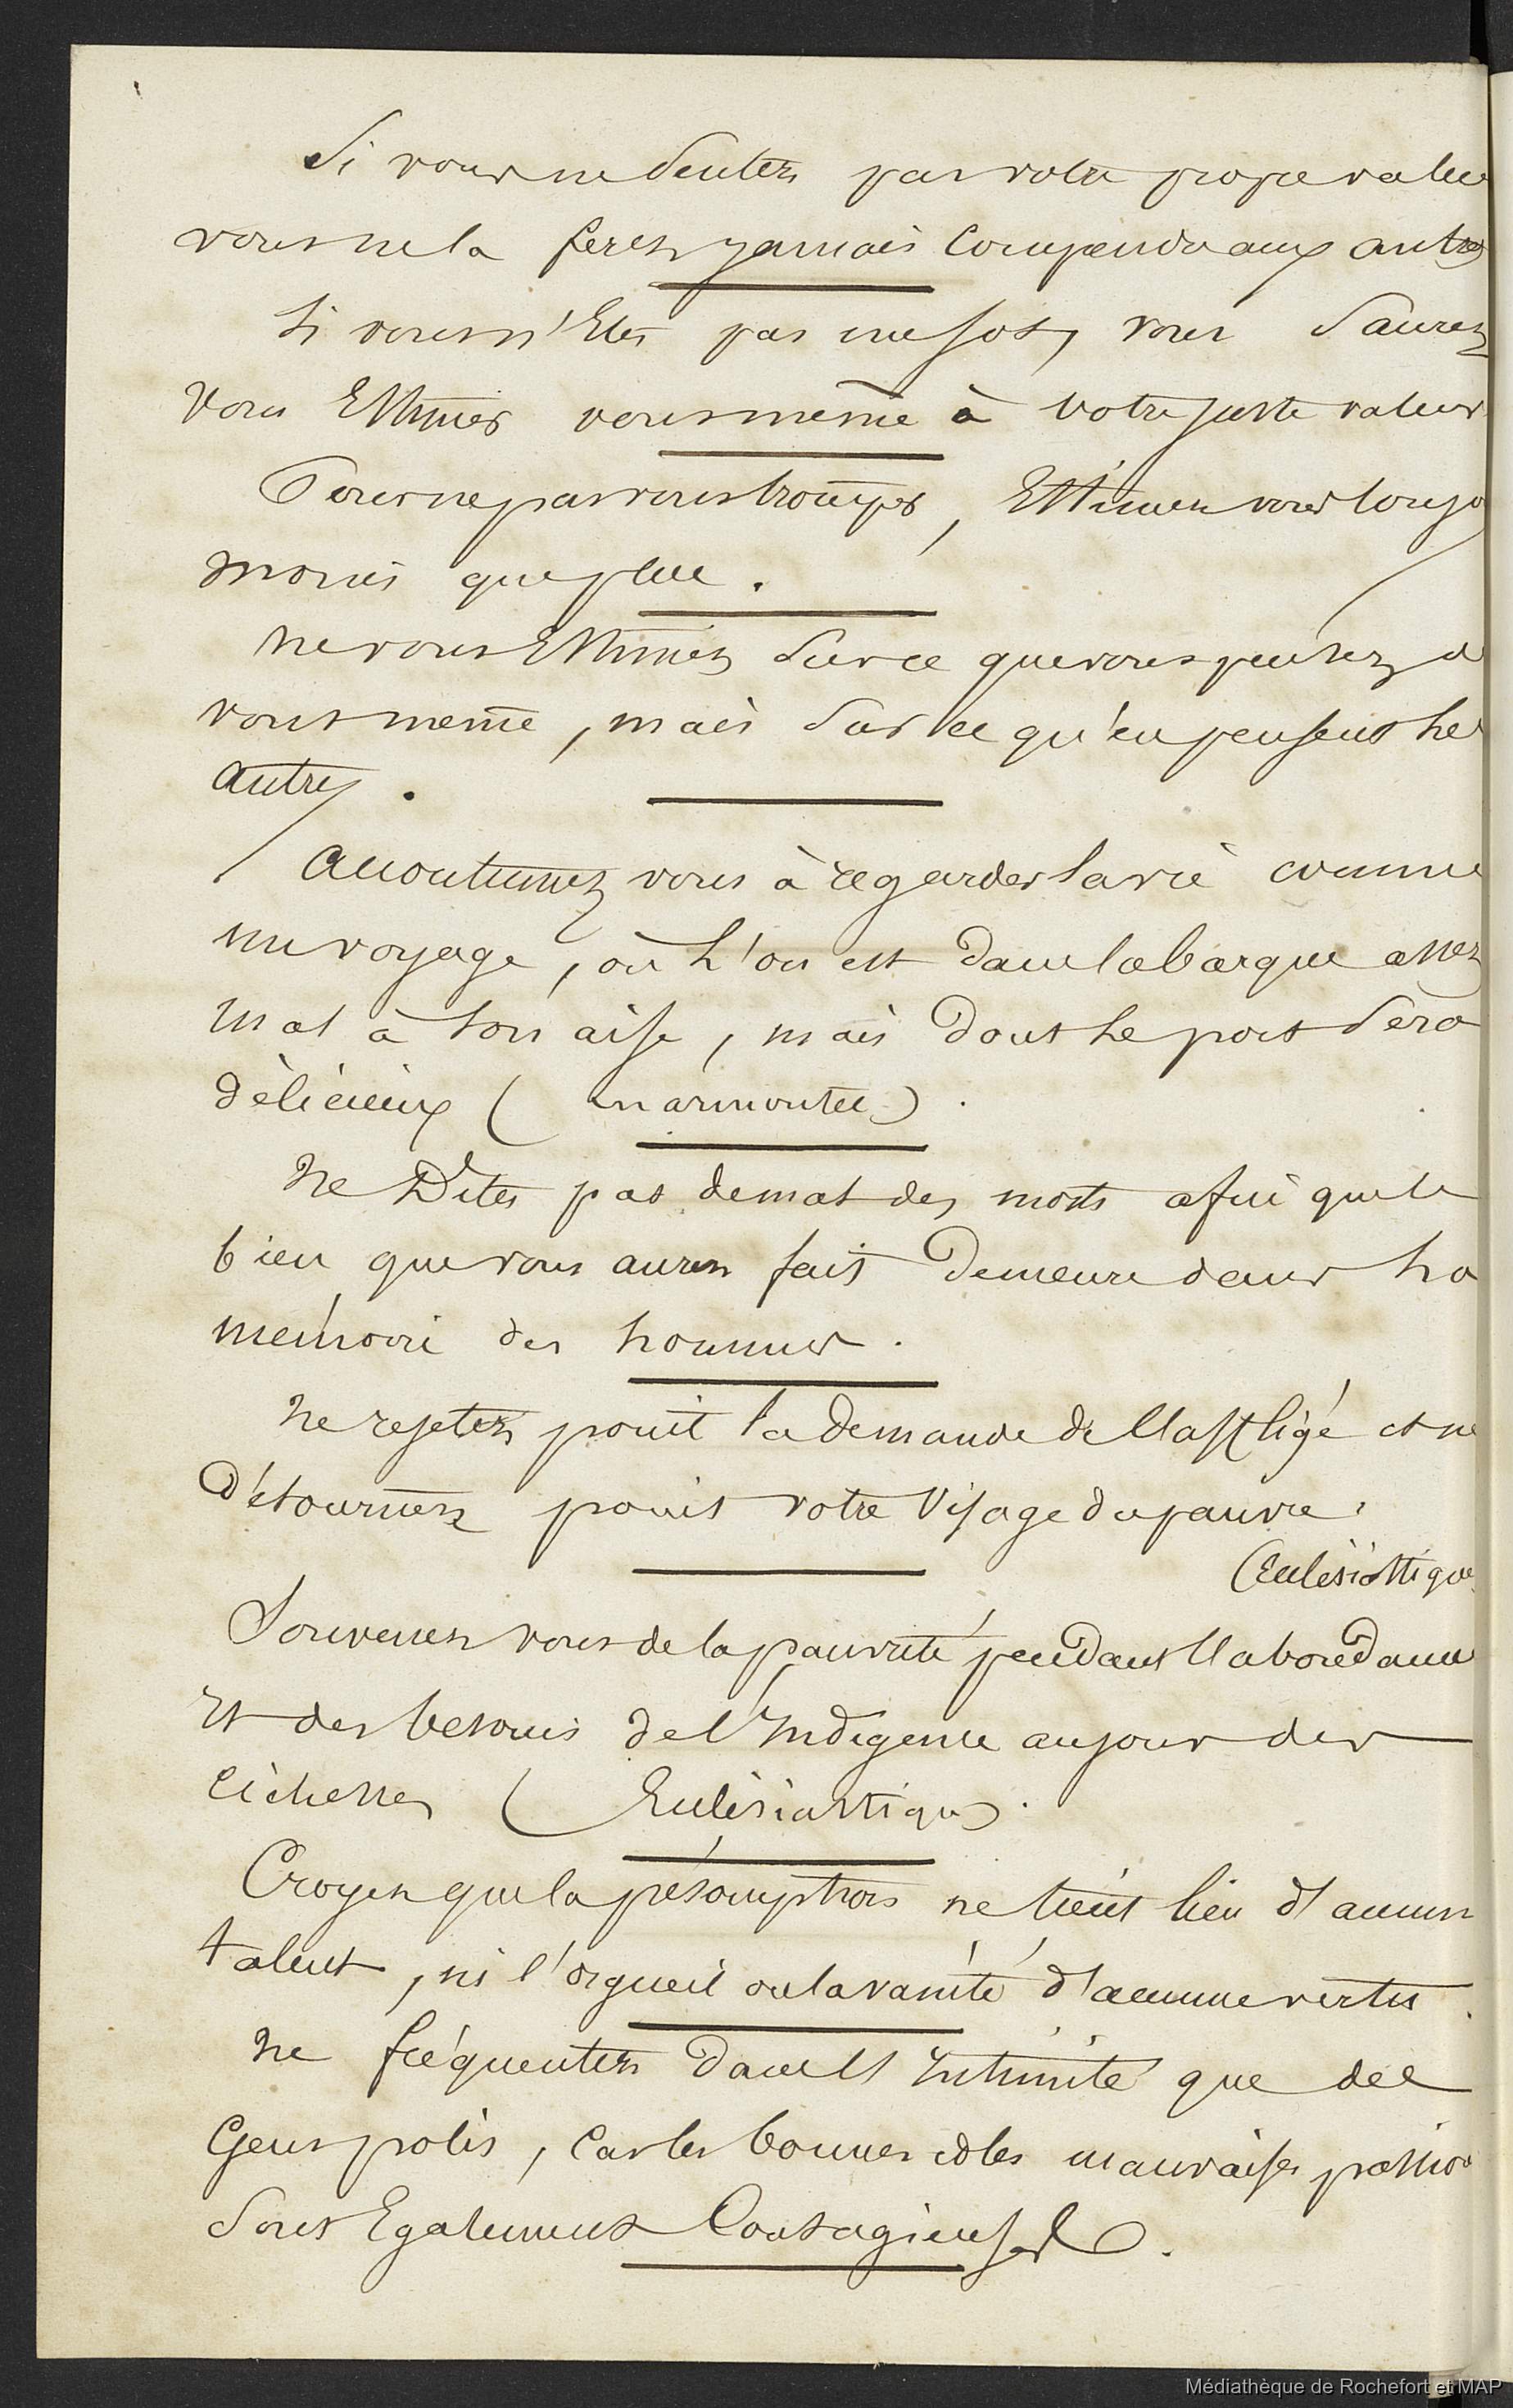 Si vous ne sentez pas votre propre valeu
vous ne la ferez jamais comprendre aux autres
Si vous n'Etes pas un sot, vous saurez
vous Estimer vous meme à votre juste valeur
Pour ne pas vous tromper, Estimez vous toujo
moins que plus.
ne vous Estimez sur ce que vous pensez d
vous meme, mais sur ce qu'en pensent les
autres.
accoutumez vous à regarder la vie comme
un voyage, où l'on est dans la barque assez
mal à son aise, mais dont le port sera
délicieux (marmontel).
Ne Dites pas de mal des morts afin que le
bien que vous aurez fait Demeure dans la
mémoire des hommes.
ne rejetez point la demande de l'affligé et ne
Détournez point votre visage du pauvre.
(Ecclésiastique
Souvenez vous de la pauvreté pendant l'abondance
Et des besoins de l'Indigence au jour des
richesses (Ecclésiastique).
Croyez que la présomption ne tient lieu d'aucun
talent, ni l'orgueil ou la vanité d'aucune vertu.
ne fréquentez dans l'Intimité que des
Gens polis, car les bonnes et les mauvaises passio
sont Egalement Contagieuses.
Médiathèque de Rochefort et MAP